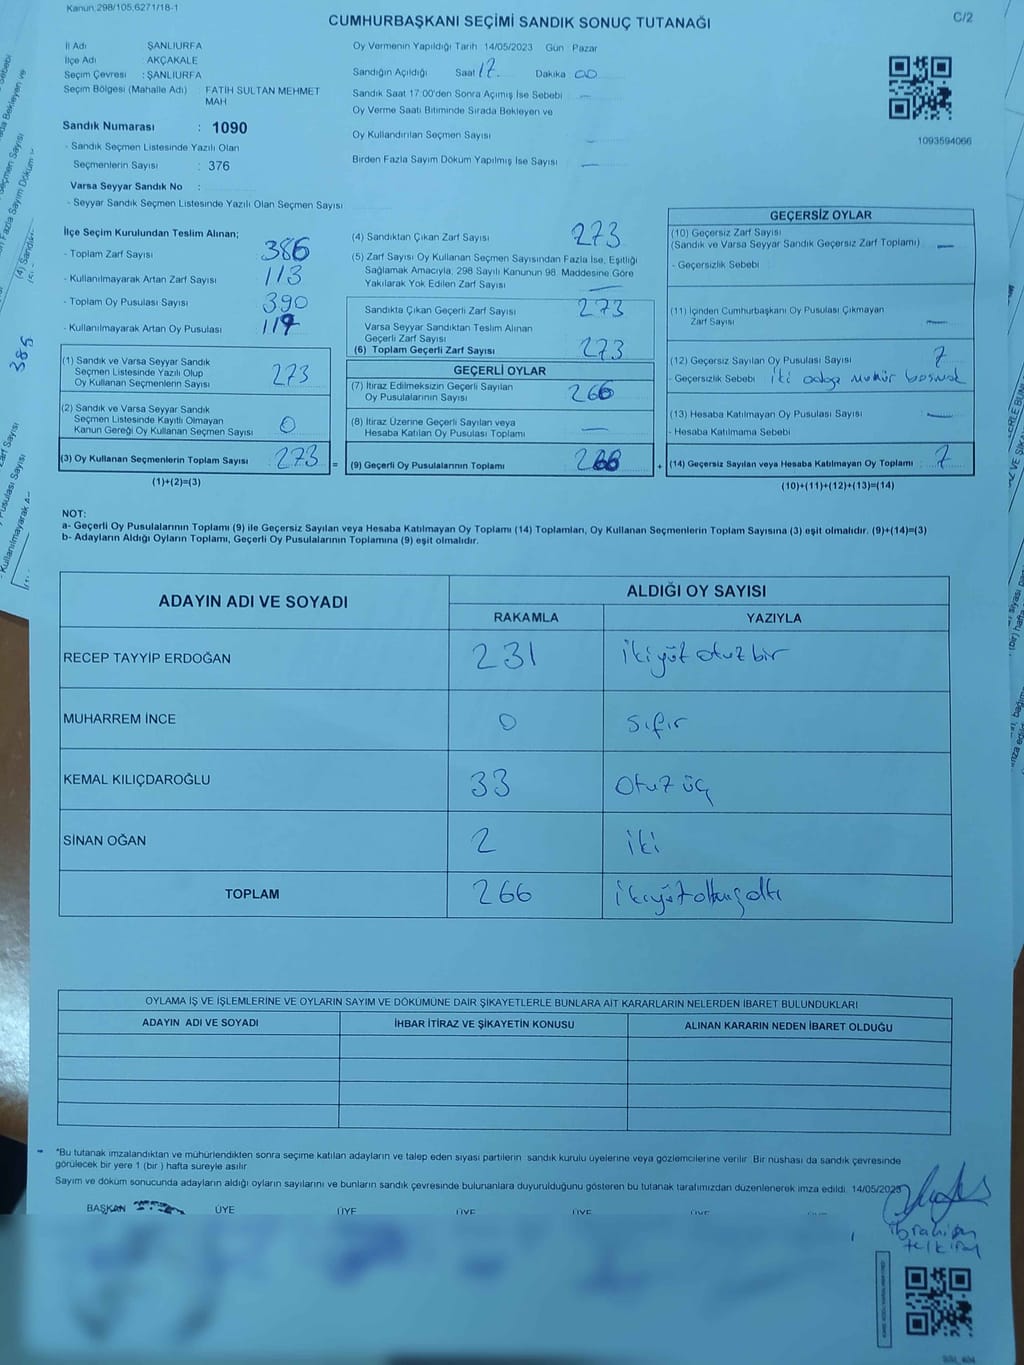 Kanun 298/105,6271/18-1
C/2
CUMHURBAŞKANI SEÇİMİ SANDIK SONUÇ TUTANAĞI
İl Adı ŞANLIURFA
İlçe Adı AKÇAKALE
Seçim Çevresi : ŞANLIURFA
Seçim Bölgesi (Mahalle Adı) : FATİH SULTAN MEHMET
MAH
Sandık Numarası : 1090
- Sandık Seçmen Listesinde Yazılı Olan
Seçmenlerin Sayısı : 376
Varsa Seyyar Sandık No :
- Seyyar Sandık Seçmen Listesinde Yazılı Olan Seçmen Sayısı
Oy Vermenin Yapıldığı Tarih 14/05/2023 Gün : Pazar
Sandığın Açıldığı Saat 17. Dakika 00
Sandık Saat 17:00'den Sonra Açımış İse Sebebi —
Oy Verme Saati Bitiminde Sırada Bekleyen ve
Oy Kullandırılan Seçmen Sayısı —
Birden Fazla Sayım Döküm Yapılmış İse Sayısı —
1093594066
İlçe Seçim Kurulundan Teslim Alınan;
- Toplam Zarf Sayısı 386
- Kullanılmayarak Artan Zarf Sayısı 113
- Toplam Oy Pusulası Sayısı 390
- Kullanılmayarak Artan Oy Pusulası 117
(1) Sandık ve Varsa Seyyar Sandık
Seçmen Listesinde Yazılı Olup
Oy Kullanan Seçmenlerin Sayısı 273
(2) Sandık ve Varsa Seyyar Sandık
Seçmen Listesinde Kayıtlı Olmayan
Kanun Gereği Oy Kullanan Seçmen Sayısı 0
(3) Oy Kullanan Seçmenlerin Toplam Sayısı 273 =
(1)+(2)=(3)
(4) Sandıktan Çıkan Zarf Sayısı 273
(5) Zarf Sayısı Oy Kullanan Seçmen Sayısından Fazla İse, Eşitliği
Sağlamak Amacıyla, 298 Sayılı Kanunun 98. Maddesine Göre
Yakılarak Yok Edilen Zarf Sayısı —
Sandıkta Çıkan Geçerli Zarf Sayısı 273
Varsa Seyyar Sandıktan Teslim Alınan
Geçerli Zarf Sayısı
(6) Toplam Geçerli Zarf Sayısı 273
GEÇERLİ OYLAR
(7) İtiraz Edilmeksizin Geçerli Sayılan
Oy Pusulalarının Sayısı 266
(8) İtiraz Üzerine Geçerli Sayılan veya
Hesaba Katılan Oy Pusulası Toplamı —
(9) Geçerli Oy Pusulalarının Toplamı 266 +
GEÇERSİZ OYLAR
(10) Geçersiz Zarf Sayısı
(Sandık ve Varsa Seyyar Sandık Geçersiz Zarf Toplamı) —
- Geçersizlik Sebebi
(11) İçinden Cumhurbaşkanı Oy Pusulası Çıkmayan
Zarf Sayısı —
(12) Geçersiz Sayılan Oy Pusulası Sayısı 7
- Geçersizlik Sebebi iki adaya mühür basmak
(13) Hesaba Katılmayan Oy Pusulası Sayısı —
- Hesaba Katılmama Sebebi
(14) Geçersiz Sayılan veya Hesaba Katılmayan Oy Toplamı 7
(10)+(11)+(12)+(13)=(14)
NOT:
a- Geçerli Oy Pusulalarının Toplamı (9) ile Geçersiz Sayılan veya Hesaba Katılmayan Oy Toplamı (14) Toplamları, Oy Kullanan Seçmenlerin Toplam Sayısına (3) eşit olmalıdır. (9)+(14)=(3)
b- Adayların Aldığı Oyların Toplamı, Geçerli Oy Pusulalarının Toplamına (9) eşit olmalıdır.
ADAYIN ADI VE SOYADI
ALDIĞI OY SAYISI
RAKAMLA YAZIYLA
RECEP TAYYİP ERDOĞAN 231 ikiyüz otuz bir
MUHARREM İNCE 0 sıfır
KEMAL KILIÇDAROĞLU 33 otuz üç
SİNAN OĞAN 2 iki
TOPLAM 266 ikiyüzaltmışaltı
OYLAMA İŞ VE İŞLEMLERİNE VE OYLARIN SAYIM VE DÖKÜMÜNE DAİR ŞİKAYETLERLE BUNLARA AİT KARARLARIN NELERDEN İBARET BULUNDUKLARI
ADAYIN ADI VE SOYADI İHBAR İTİRAZ VE ŞİKAYETİN KONUSU ALINAN KARARIN NEDEN İBARET OLDUĞU
*Bu tutanak imzalandıktan ve mühürlendikten sonra seçime katılan adayların ve talep eden siyasi partilerin sandık kurulu üyelerine veya gözlemcilerine verilir. Bir nüshası da sandık çevresinde
görülecek bir yere 1 (bir ) hafta süreyle asılır.
Sayım ve döküm sonucunda adayların aldığı oyların sayılarını ve bunların sandık çevresinde bulunanlara duyurulduğunu gösteren bu tutanak tarafımızdan düzenlenerek imza edildi. 14/05/2023
BAŞKAN ÜYE ÜYE ÜYE ÜYE ÜYE
ibrahim